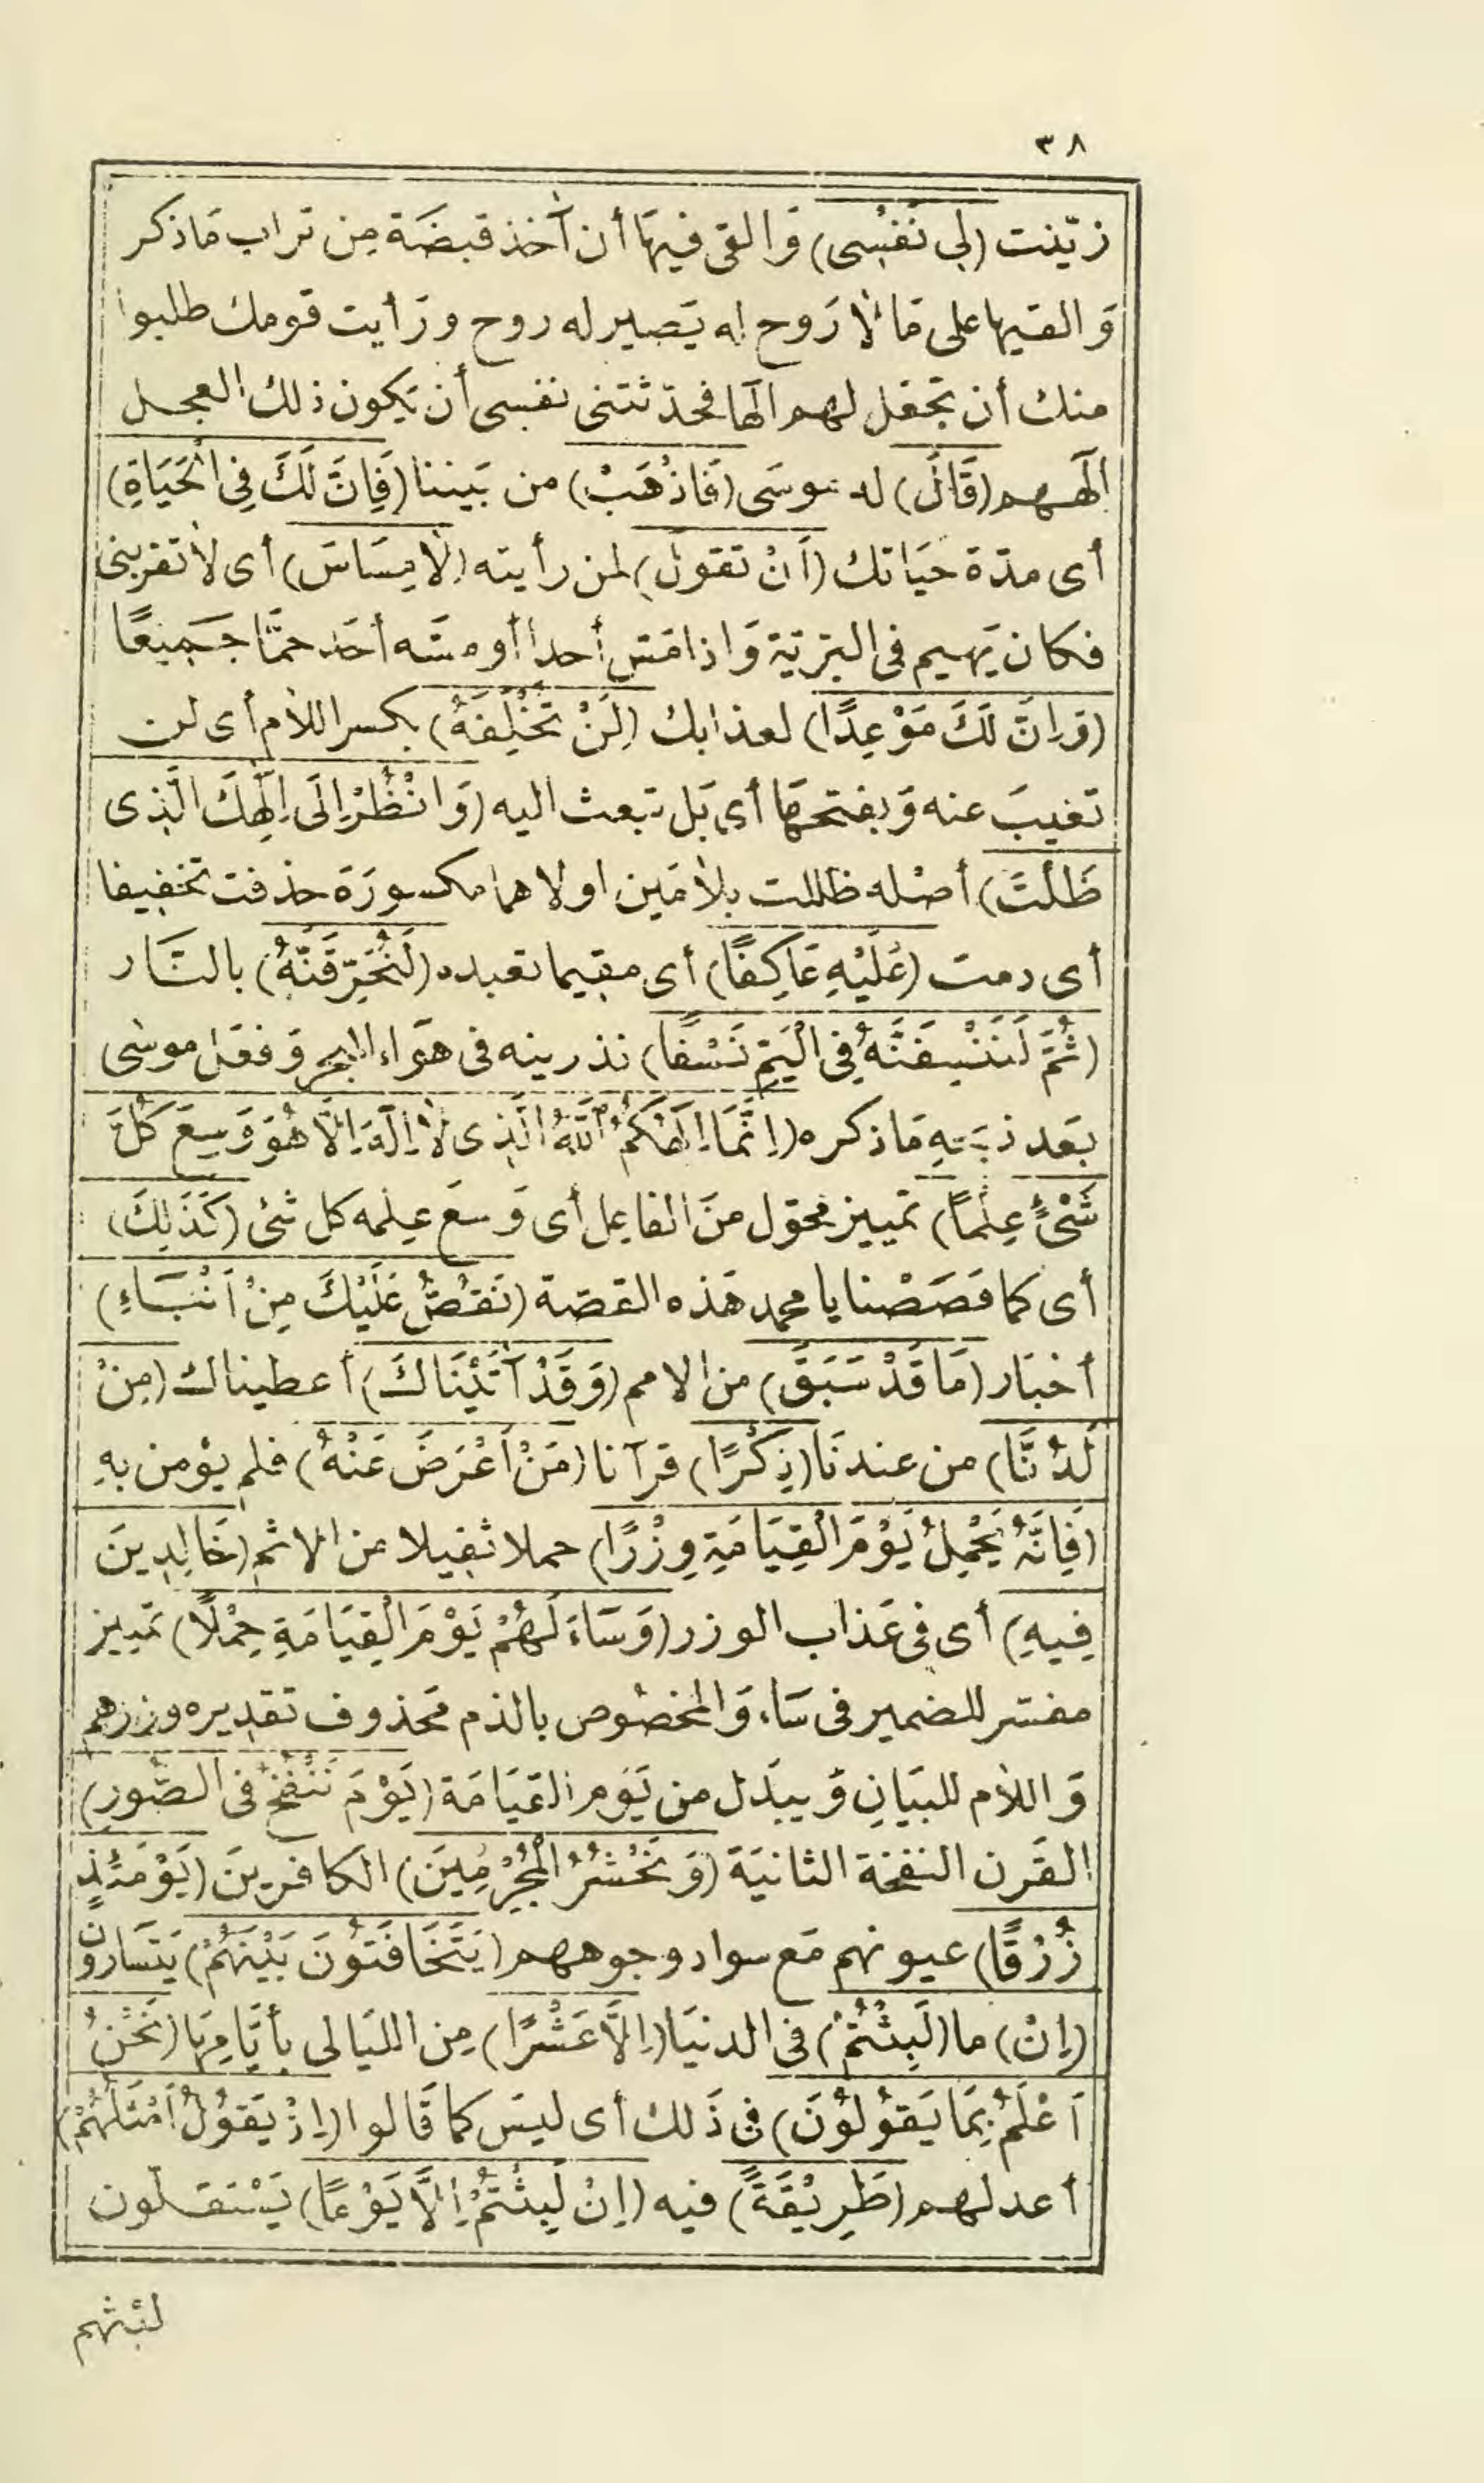 ٣٨
زيّنت (لِي نَفْسِى) وَالقى فيهَا أن آخذ قبضَة مِن تراب مَاذكر
وَالقيها على مَا لا رَوح له يَصير له روح ورَأيت قومك طلبوا
منك أن تجعَل لهم الٓها فحدّثتنى نفسى أن يَكون ذلك العجل
الٓههم (قَالَ) له موسَى (فَاذْهَبْ) من بَيننا (فَاِنَّ لَكَ فِى الْحَيَاةِ)
أى مدّة حيَاتك (اَنْ تَقولَ) لمن رأيته (لَا مِسَاسَ) أى لا تقربنى
فكان يَهيم فى البَرّيّة وَاذا مَسّ أحدا أو مسّه أحَد حمّا جَميعًا
(وَاِنَّ لَكَ مَوْعِدًا) لعذابك (لَنْ تُخْلِفَهُ) بكسر اللام أى لن
تغيبَ عنه وَبفتحهَا أى بَل تبعث اليه (وَانْظُرْ اِلَى اِلٰهِكَ الَّذِى
ظَلْتَ) أصْله ظللت بلامَين اولاهما مكسورَة حذفت تخفيفا
أى دمت (عَلَيْهِ عَاكِفًا) أى مقيما تعبده (لَنُحَرِّقَنَّهُ) بالنَّار
(ثُمَّ لَنَنْسِفَنَّهُ فِى الْيَمِّ نَسْفًا) نذرينه فى هوَاء البحر وَفعَل موسٰى
بَعد ذبَحهِ مَا ذكره (اِنَّمَا اِلٰهُكُمُ اللّٰهُ الَّذِى لَا اِلٰهَ اِلَّا هُوَ وَسِعَ كُلَّ
شَىْءٍ عِلْمًا) تمييز محَوّل منَ الفاعِل أى وَسعَ عِلمه كل شئ (كَذٰلِكَ)
أى كما قصَصْنا يا محمد هَذه القصّة (نَقُصُّ عَلَيْكَ مِنْ اَنْبَاءِ)
أخبَار (مَا قَدْ سَبَقَ) من الامم (وَقَدْ آتَيْنَاكَ) أعطيناك (مِنْ
لَدُنَّا) من عندنَا (ذِكْرًا) قرآنا (مَنْ اَعْرَضَ عَنْهُ) فلم يؤمن بهِ
(فَاِنَّهُ يَحْمِلُ يَوْمَ الْقِيَامَةِ وِزْرًا) حملا ثقيلا من الاثم (خَالِدِينَ
فِيهِ) أى فى عَذاب الوزر (وَسَاءَ لَهُمْ يَوْمَ الْقِيَامَةِ حِمْلًا) تمييز
مفسّر للضمير فى سَاء وَالمخصُوص بالذم محَذوف تقديره وزرهم
وَاللام للبيَانِ وَيبدَل من يَوم القيَامَة (يَوْمَ نَنْفُخُ فى الصُّورِ)
القَرن النفخة الثانيَة (وَنَحْشُرُ الْمُجْرِمِينَ) الكافرينَ (يَوْمَئِذٍ
زُرْقًا) عيونهم مَع سواد وجوههم (يَتَخَافَتُونَ بَيْنَهُمْ) يَتسَارّون
(اِنْ) ما (لَبِثْتُمْ) فى الدنيَا (اِلَّا عَشْرًا) مِن الليَالى بأيّامِهَا (نَحْنُ
اَعْلَمُ بِمَا يَقُولُونَ) فى ذَلك أى ليسَ كما قَالوا (اِذْ يَقُولُ اَمْثَلُهُمْ)
أعدلهم (طَرِيْقَةً) فيه (اِنْ لَبِثْتُمْ اِلَّا يَوْمًا) يَسْتقلّون
لبثهم